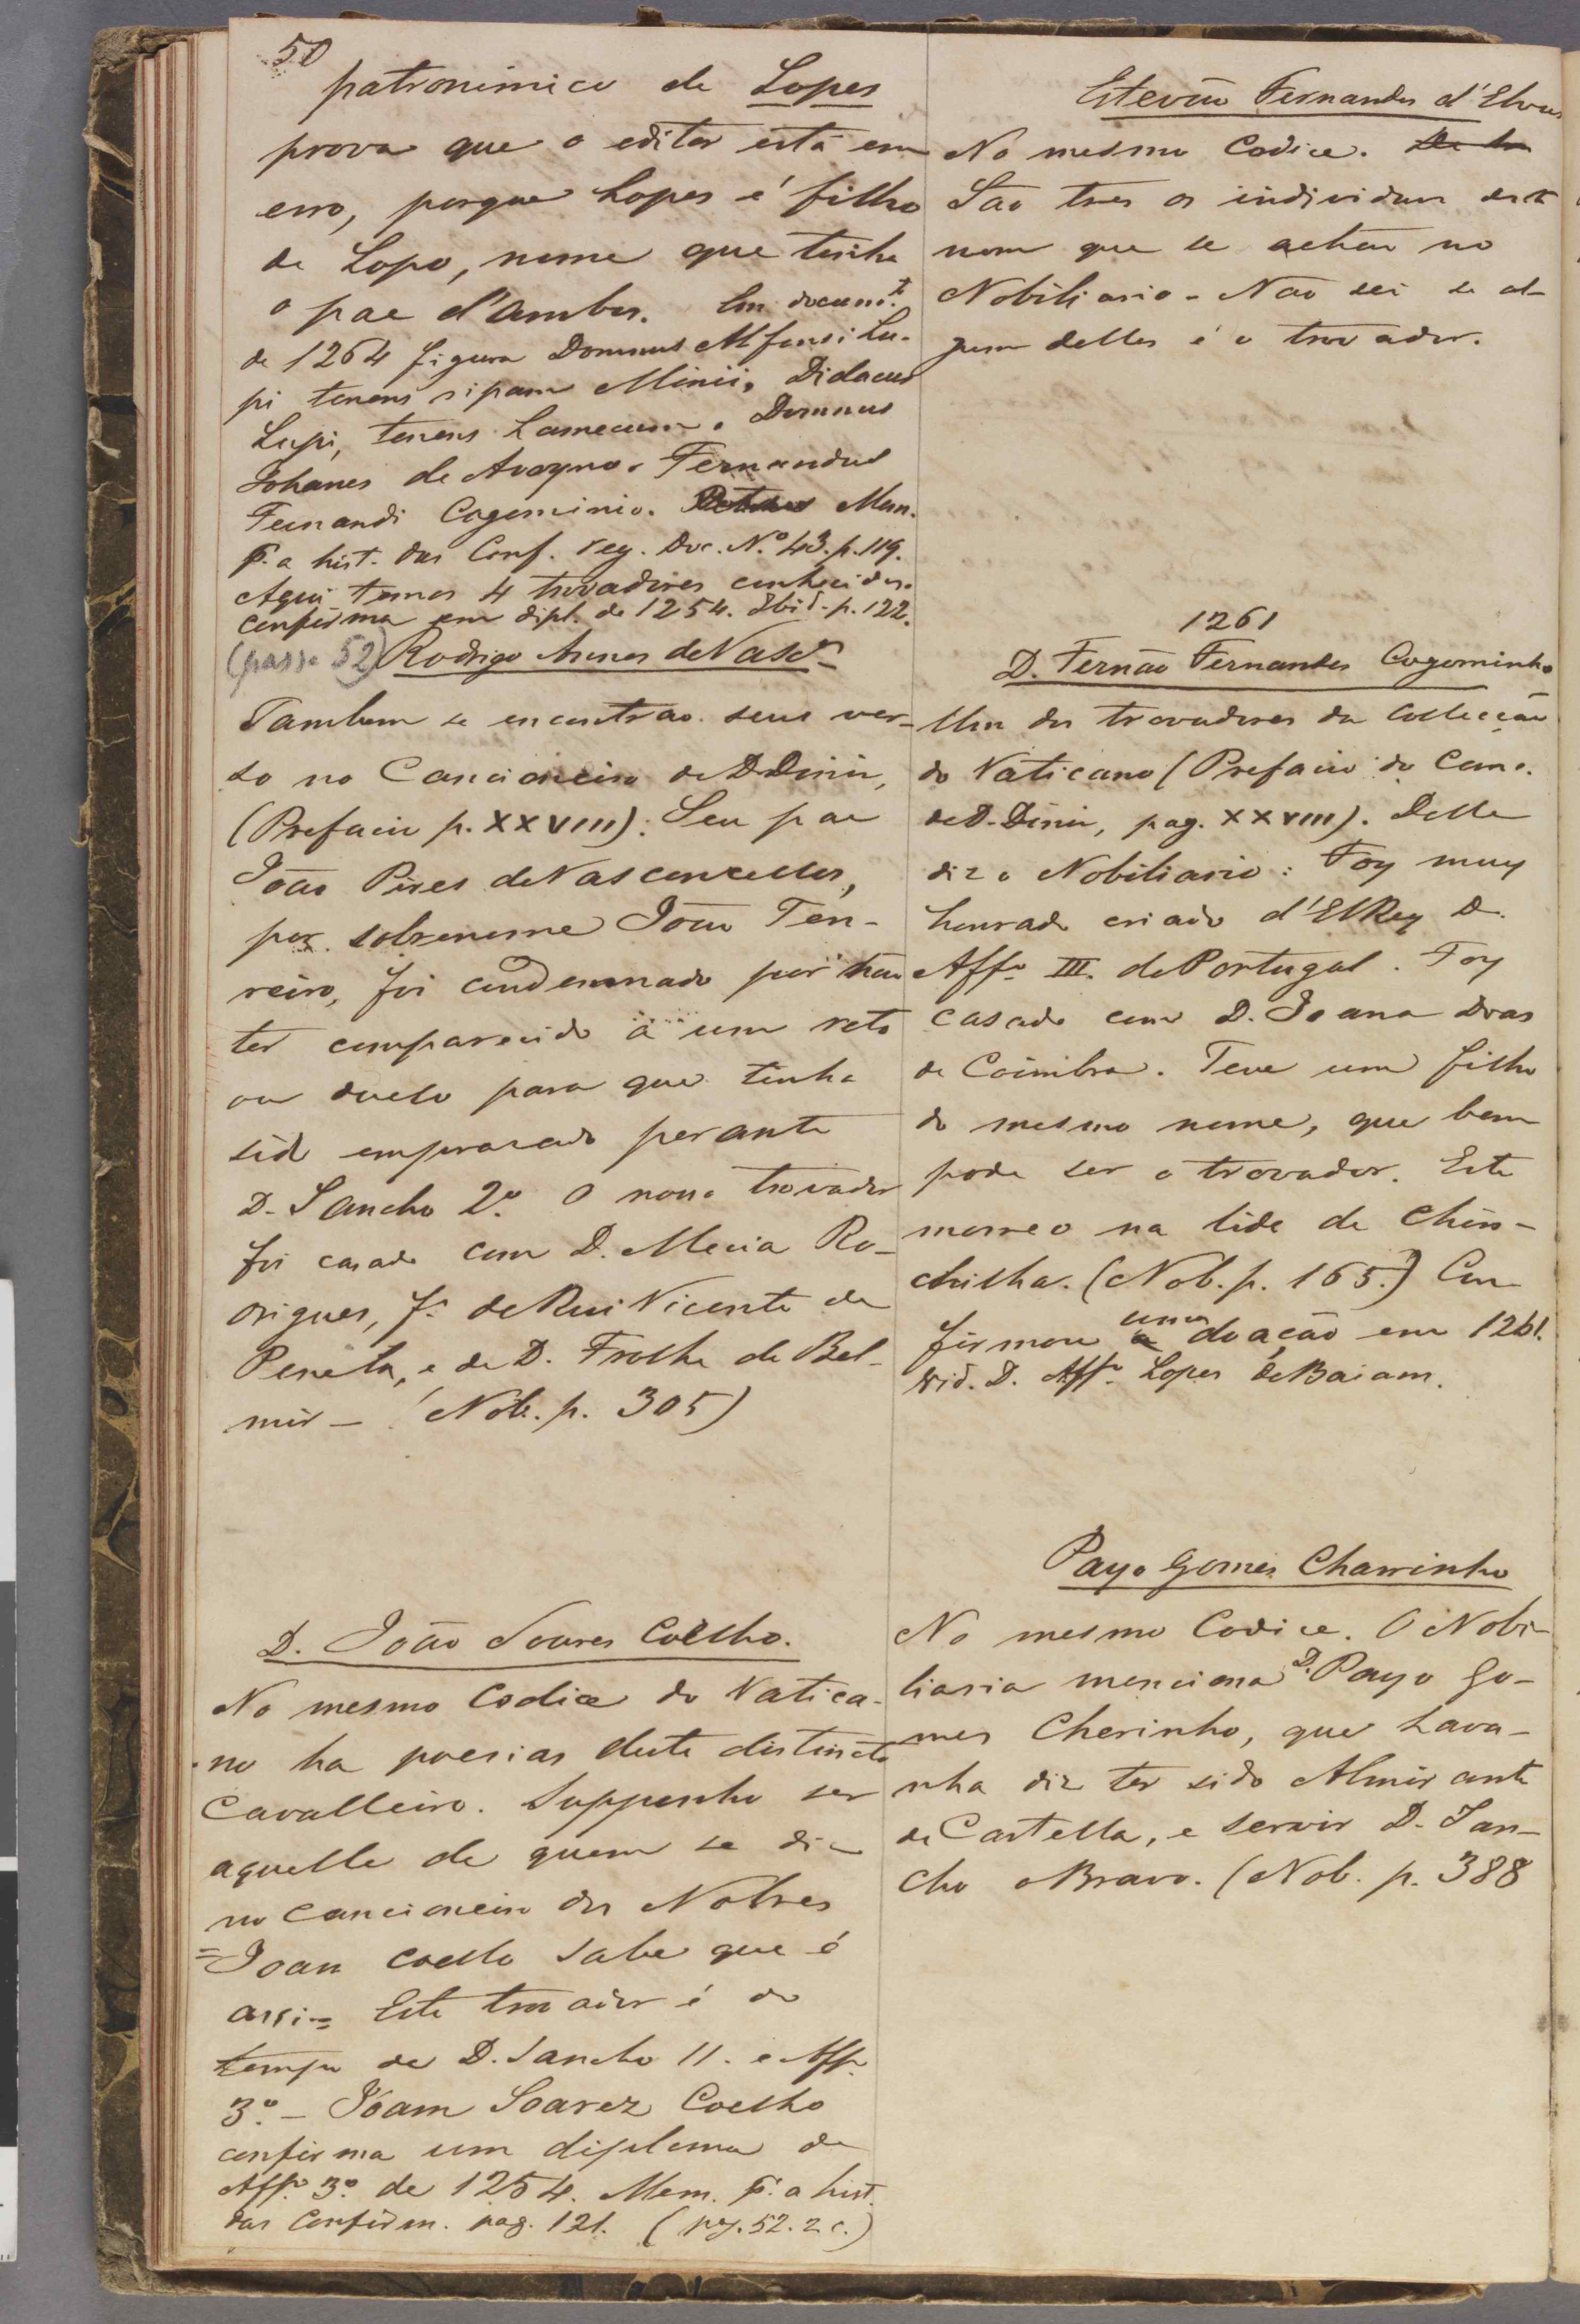 50
patronimico de Lopes
prova que o editor está em
erro, porque Lopes é filho
de Lopo, nome que tinha
o pae d'ambos. Em docum.to
de 1264 figura Domnus Alfonsi Lu-
pi tenens ripam Minii, Didacus
Lupi, tenens Lamecum. Domnus
Johanes de Avoyno. Fernandus
Fernandi Cogominio. Mem.
p.a a hist. das Conf. reg. Doc. N.o 43. p. 119.
Aqui temos 4 trovadores conhecidos.
Confirma em dipl. de 1254. Ibid. p. 122.
(passe 52) Rodrigo Annes de Vasc.os
Tambem se encontrão seus ver-
so no Cancioneiro de D. Diniz,
(Prefacio p. XXVIII). Seu pae
João Pires de Vasconcellos,
por sobrenome João Ten-
reiro, foi condemnado por não
ter comparecido a um reto
ou duelo para que tinha
sid emprazado perante
D. Sancho 2.o O nosso trovador
foi casado com D. Mecia Ro-
drigues, f.a de Rui Vicente de
Penela, e de D. Frolhe de Bel-
mir - (Nob. p. 305)
D. João Soares Coelho.
No mesmo Codice do Vatica-
no ha poesias deste distincto
Cavalleiro. Supponho ser
aquelle de quem se diz
no Cancioneiro dos Nobres
=Joan Coello sabe que é
assi= Este trovador é do
tempo de D. Sancho II. e Aff.o
3.o - Joam Soarez Coelho
confirma um diploma de
Aff.o 3.o de 1254. Mem. p.a a hist.
das Confirm. pag. 121. (pag. 52. 2 c.)
Estevão Fernandes d'Elvas
No mesmo Codice.
São tres os individuos deste
nome que se achão no
Nobiliario - Não sei se al-
gum delles é o trovador.
1261
D. Fernão Fernandes Cogominho
Um dos trovadores da Collecção
do Vaticano (Prefacio do Canc.
de D. Diniz, pag. XXVIII). Delle
diz o Nobiliario: Foy muy
honrado criado d'ElRey D.
Aff.o III. de Portugal. Foy
casado com D. Joana Dias
de Coimbra. Teve um filho
do mesmo nome, que bem
pode ser o trovador. Este
morreo na lide de Chin-
chilha. (Nob. p. 165.) Con
firmou uma doação em 1261.
vid. D. Aff.o Lopes de Baiam.
Payo Gomes Charrinho
No mesmo Codice. O Nobi-
liario menciona D. Payo Go-
mes Cherinho, que Lava-
nha diz ter sido Almirante
de Castella, e servir D. San-
cho o Bravo. (Nob. p. 388